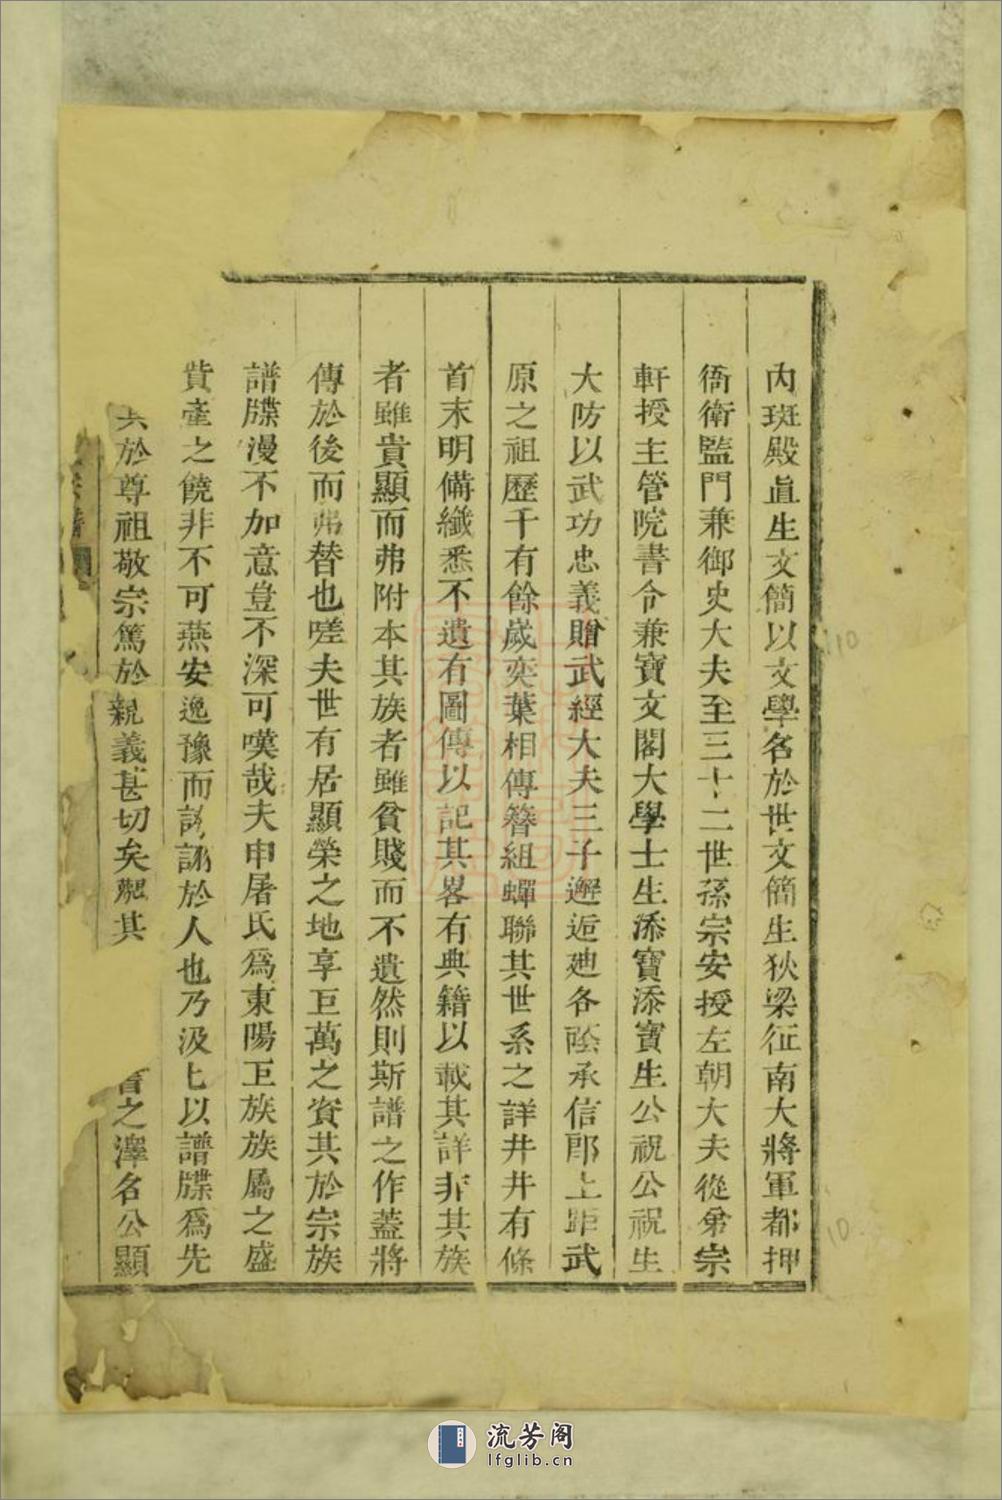 內班殿直生文簡以文學名於世文簡生狄梁征南大將軍都押
衙衛監門兼御史大夫至三十二世孫宗安授左朝大夫從弟宗
軒授主管院書令兼寶文閣大學士生添寶添寶生公祝公祝生
大防以武功忠義贈武經大夫三子邂逅廸各蔭承信郎上距武
原之祖歷千有餘歲奕葉相傳簪組蟬聯其世系之詳井井有條
首末明備纖悉不遺有圖傳以記其畧有典籍以載其詳非其族
者雖貴顯而弗附本其族者雖貧賤而不遺然則斯譜之作蓋將
傳於後而弗替也嗟夫世有居顯榮之地享巨萬之資其於宗族
譜牒漫不加意豈不深可嘆哉夫申屠氏爲東陽巨族族屬之盛
貲產之饒非不可燕安逸豫而誇詡於人也乃汲匕以譜牒爲先
於尊祖敬宗篤於親義甚切矣觀其
之澤名公顯
流芳阁
lfglib.cn